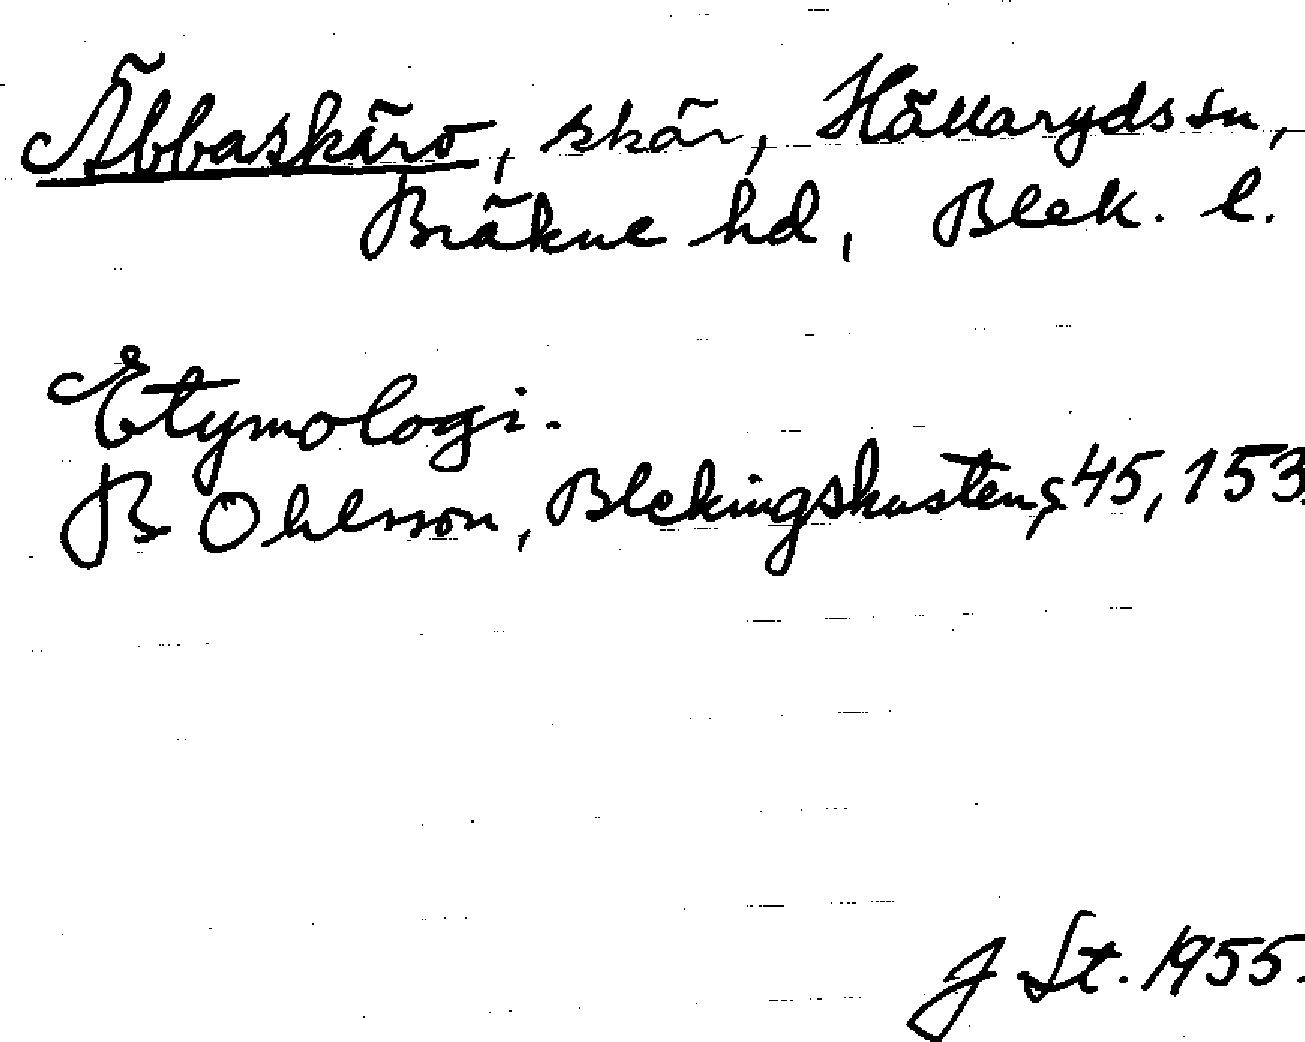 Äbbaskärö, skär, Hällaryds sn,
Bräkne hd, Blek. l.
Etymologi.
B Ohlsson, Blekingskusten, s 45, 153.
J St. 1955.